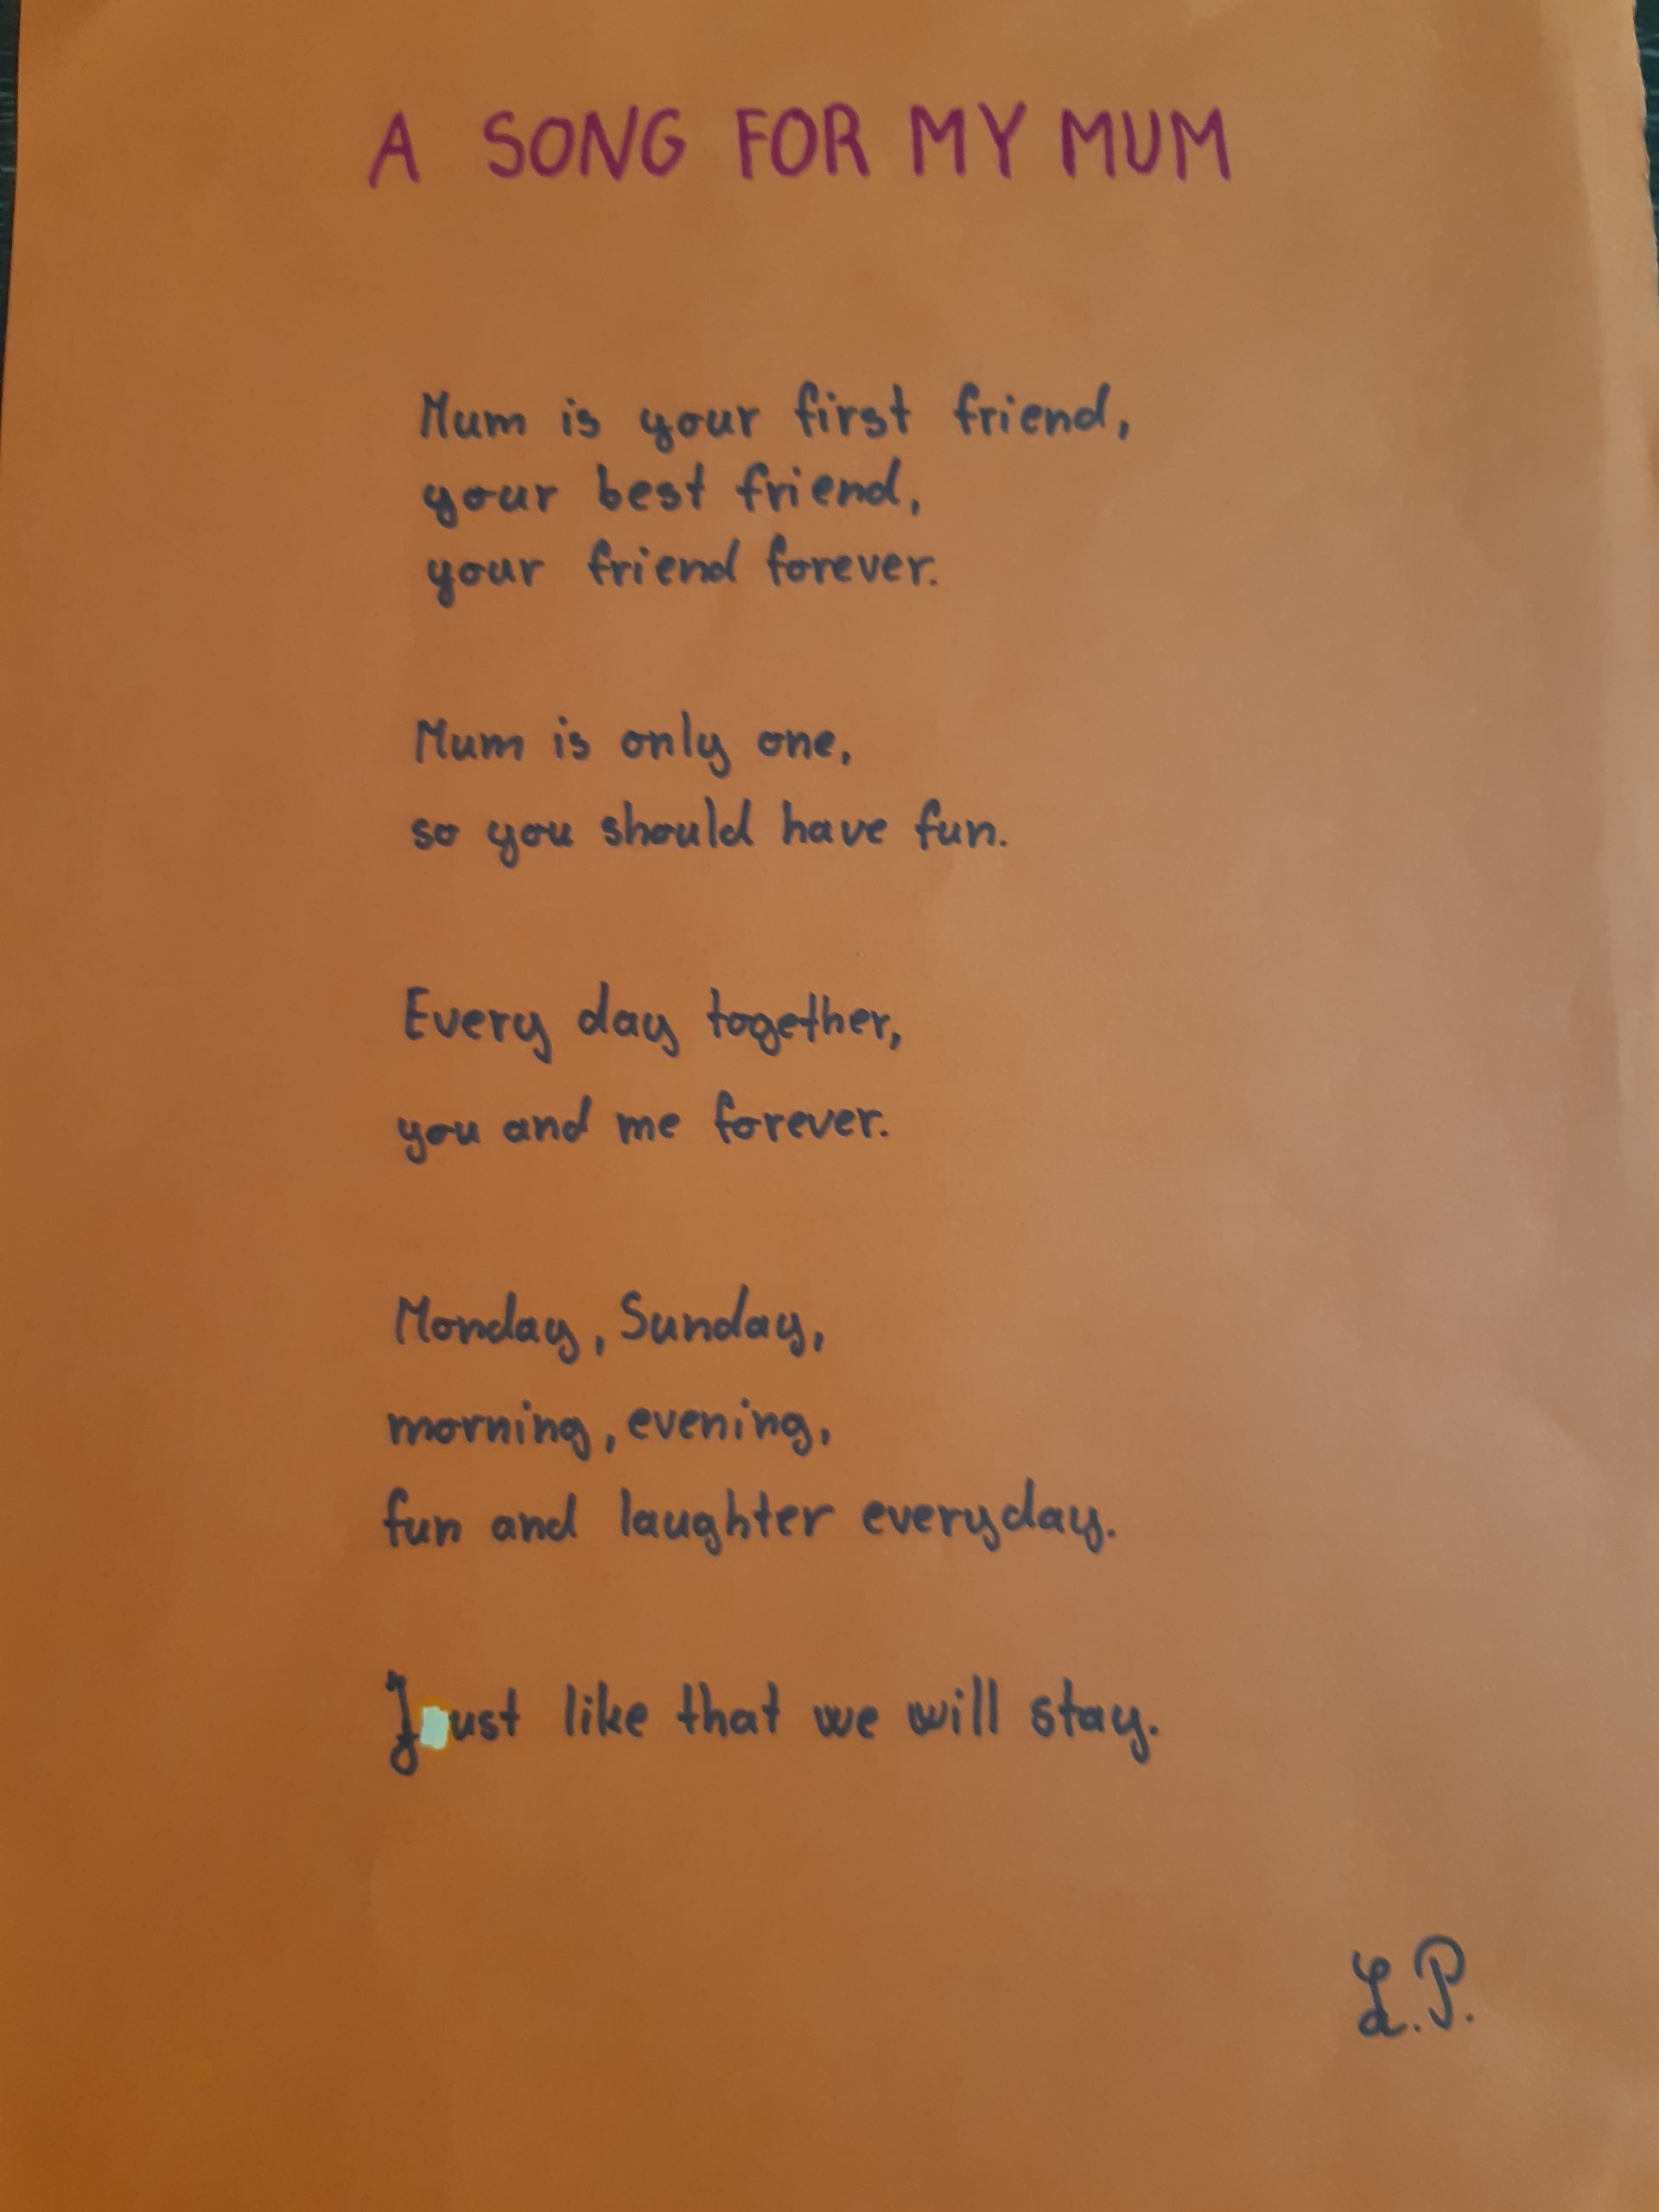 A SONG FOR MY MUM
Mum is your first friend,
your best friend,
your friend forever.
Mum is only one,
so you should have fun.
Every day together,
you and me forever.
Monday, Sunday,
morning, evening,
fun and laughter everyday.
Just like that we will stay.
L.P.